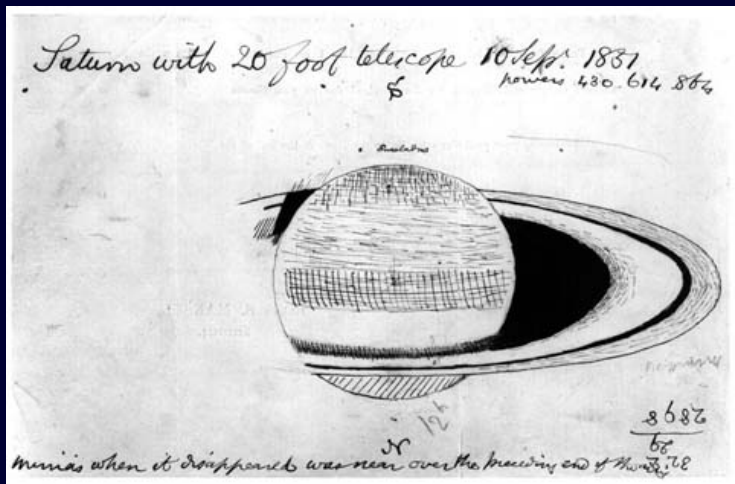 Saturn with 20 foot telescope 10 Sept. 1851
powers 430. 614 864
S
Enceladus
N
mimas when it disappeared was near over the preceding end of the ring